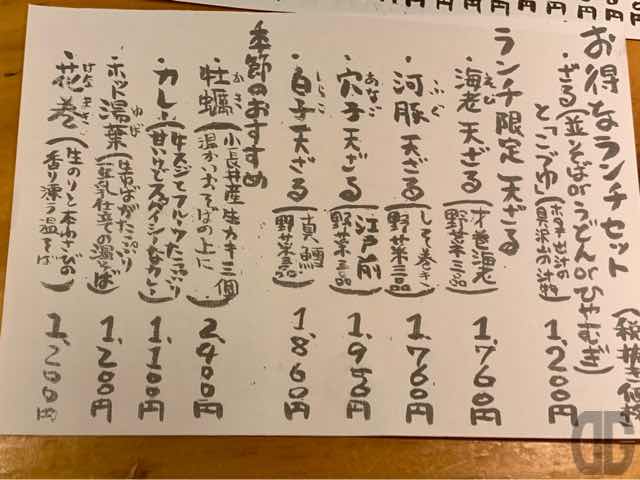 お得なランチセット(税抜き価格)
・ざる(並そばorうどんorひやむぎ)
と「こづゆ」(ホタテ出汁の具沢山汁物) 1,200円
ランチ限定 天ざる
・海老天ざる(才巻海老 野菜三品) 1,760円
・河豚天ざる(しそ巻き 野菜三品) 1,760円
・穴子天ざる(江戸前 野菜三品) 1,950円
・白子天ざる(真鱈 野菜三品) 1,860円
季節のおすすめ
・牡蠣(小長井産生カキ三個 温かいおそばの上に) 2,400円
・カレー(牛スジとフルーツたっぷり 甘いけどスパイシーなカレー) 1,100円
・ホット湯葉(生ゆばがたっぷり 豆乳仕立ての湯そば) 1,200円
・花巻(生のりと本わさびの 香り漂う温そば) 1,200円